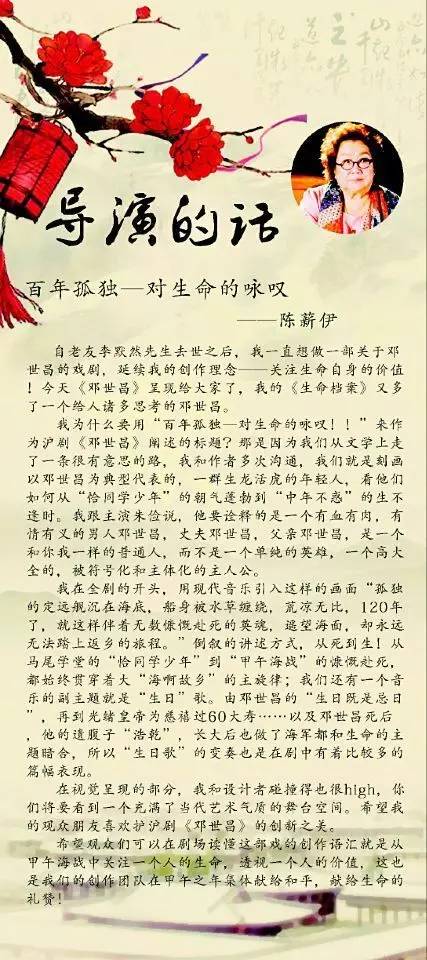 导演的话
百年孤独—对生命的咏叹
——陈薪伊
自老友李默然先生去世之后，我一直想做一部关于邓
世昌的戏剧，延续我的创作理念——关注生命自身的价值
！今天《邓世昌》呈现给大家了，我的《生命档案》又多
了一个给人诸多思考的邓世昌。
我为什么要用“百年孤独—对生命的咏叹！！”来作
为沪剧《邓世昌》阐述的标题？那是因为我们从文学上走
了一条很有意思的路，我和作者多次沟通，我们就是刻画
以邓世昌为典型代表的，一群生龙活虎的年轻人，看他们
如何从“恰同学少年”的朝气蓬勃到“中年不惑”的生不
逢时。我跟主演朱俭说，他要诠释的是一个有血有肉，有
情有义的男人邓世昌，丈夫邓世昌，父亲邓世昌，是一个
和你我一样的普通人，而不是一个单纯的英雄，一个高大
全的，被符号化和主体化的主人公。
我在全剧的开头，用现代音乐引入这样的画面“孤独
的定远舰沉在海底，船身被水草缠绕，荒凉无比，120年
了，就这样伴着无数慷慨赴死的英魂，遥望海面，却永远
无法踏上返乡的旅程。”倒叙的讲述方式，从死到生！从
马尾学堂的“恰同学少年”到“甲午海战”的慷慨赴死，
都始终贯穿着大“海啊故乡”的主旋律；我们还有一个音
乐的副主题就是“生日”歌。由邓世昌的“生日既是忌日
”，再到光绪皇帝为慈禧过60大寿……以及邓世昌死后
，他的遗腹子“浩乾”，长大后也做了海军都和生命的主
题暗合，所以“生日歌”的变奏也是在剧中有着比较多的
篇幅表现。
在视觉呈现的部分，我和设计者碰撞得也很high，你
们将要看到一个充满了当代艺术气质的舞台空间。希望我
的观众朋友喜欢护沪剧《邓世昌》的创新之美。
希望观众们可以在剧场读懂这部戏的创作语汇就是从
甲午海战中关注一个人的生命，透视一个人的价值，这也
是我们的创作团队在甲午之年集体献给和平，献给生命的
礼赞！